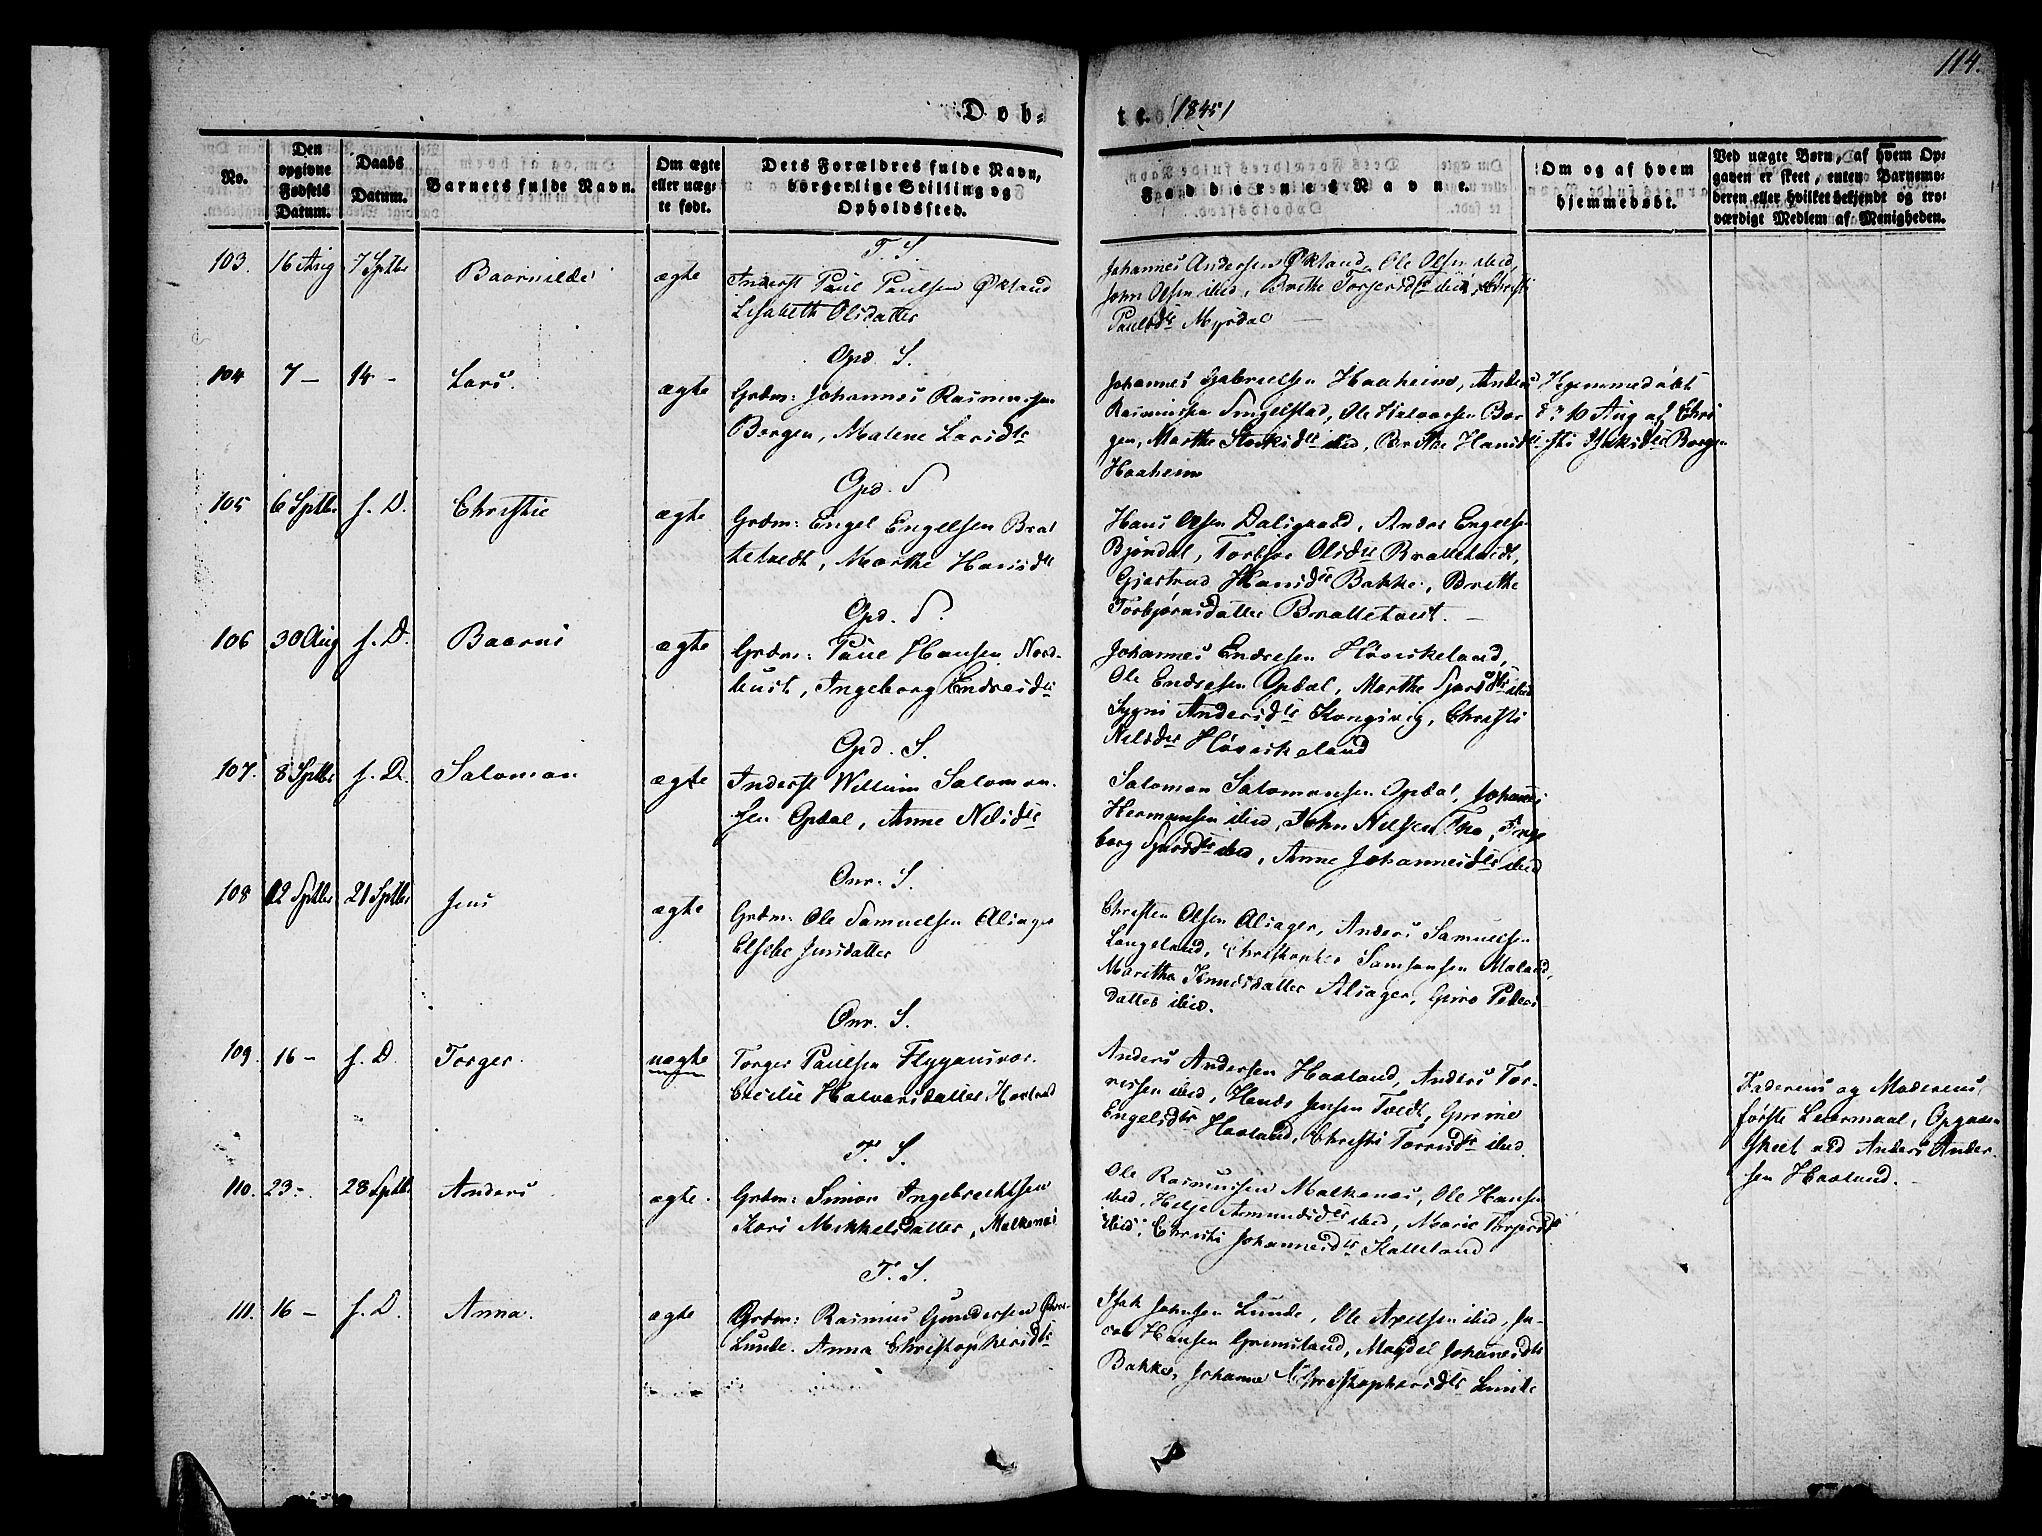 114.
Døb-
te. 1845
No.
Den opgivne Fødsels Datum.
Daabs Datum.
Barnets fulde Navn.
Om ægte eller uægte født.
Dets Forældres fulde Navn, borgerlige Stilling og Opholdssted.
Faddernes Navne.
Om og af hvem hjemmedøbt.
Ved uægte Børn, af hvem Opgaven er skeet, enten Barnemoderen eller hvilket bekjendt og troværdigt Medlem af Menigheden.
T. S.
103. 16 Aug 7 Sptbr Baarnilde ægte Inderst Paul Paulsen Økland
Lisabeth Olsdatter
Johannes Andersen Økland, Ole Olsen ibid,
John Olsen ibid, Brithe Torgersdtr ibid, Christi
Paulsdtr Myrdal
Opd. S.
104 7 - 14 - Lars. ægte Grdm: Johannes Rasmussen
Borgen, Malene Larsdtr
Johannes Gabrielsen Haaheim, Anders
Rasmussen Engelstad, Ole Halvorsen Bor-
gen, Marthe Storksdtr ibid, Brithe Hansdtr
Haaheim
Hjemmedøbt
d: 10 Aug af Chri
sti Isaksdtr Borgen
Opd. S
105 6 Sptbr s. D. Christie ægte Grdm: Engel Engelsen Brat
tetvedt, Marthe Hansdtr
Hans Olsen Dalsgaard, Anders Engelsen
Bjøndal, Torbjør Olsdtr Brattetvedt,
Gjertrud Hansdtr Bakke, Brithe
Torbjørnsdatter Brattetveit.
Opd. S.
106 30 Aug s. D. Baarni ægte Grdm: Paul Hansen Nord-
hust, Ingeborg Endresdtr
Johannes Endresen Høviskeland,
Ole Endresen Opdal, Marthe Sjursdtr ibid
Sygni Andersdtr Kongsvig, Christi
Nilsdtr Høviskeland
Opd. S.
107. 8 Sptbr s. D. Salomon ægte Inderst Willum Salomon-
sen Opdal, Anne Nilsdtr
Salomon Salomonsen Opdal, Johannes
Hermansen ibid, John Nilsen Thø, Inge
borg Sjursdtr ibid, Anne Johannesdtr ibid
Onr. S.
108 12 Sptbr 21 Sptbr Jens ægte Grdm: Ole Samuelsen Alsager
Elsebe Jensdatter
Christen Olsen Alsager, Anders Samuelsen
Langeland, Christopher Samsonsen Maland,
Maritha Knudsdatter Alsager, Guro Peders
datter ibid.
Onr. S.
109. 16 - s. D. Torger uægte Torger Paulsen Flygansvær
Cecilie Halvorsdatter Haaland
Anders Andersen Haaland, Anders Tor-
ressen ibid, Hans Jensen Tvedt, Gurine
Engelsdtr Haaland, Christi Torresdtr ibid.
Faderens og Moderens
første Leiermaal, Opgaven
skeet ved Anders Ander-
sen Haaland.
T. S.
110. 23 - 28 Sptbr Anders ægte Grdm: Simon Ingebrechtsen
Kari Mikkelsdatter, Malkenes
Ole Rasmussen Malkenes, Ole Hansen
ibid, Helje Amundsdtr ibid, Marie Torgersdtr
ibid, Christi Johannesdtr Kalleland
T. S.
111. 16 - s. D. Anna. ægte Grdm: Rasmus Gundersen Øvre-
Lunde. Anna Christophersdtr
Isak Johnsen Lunde, Ole Axelsen ibid, Ja-
cob Hansen Grønsland, Magdel Johansdtr
Bakke, Johanne Christophersdtr Lunde